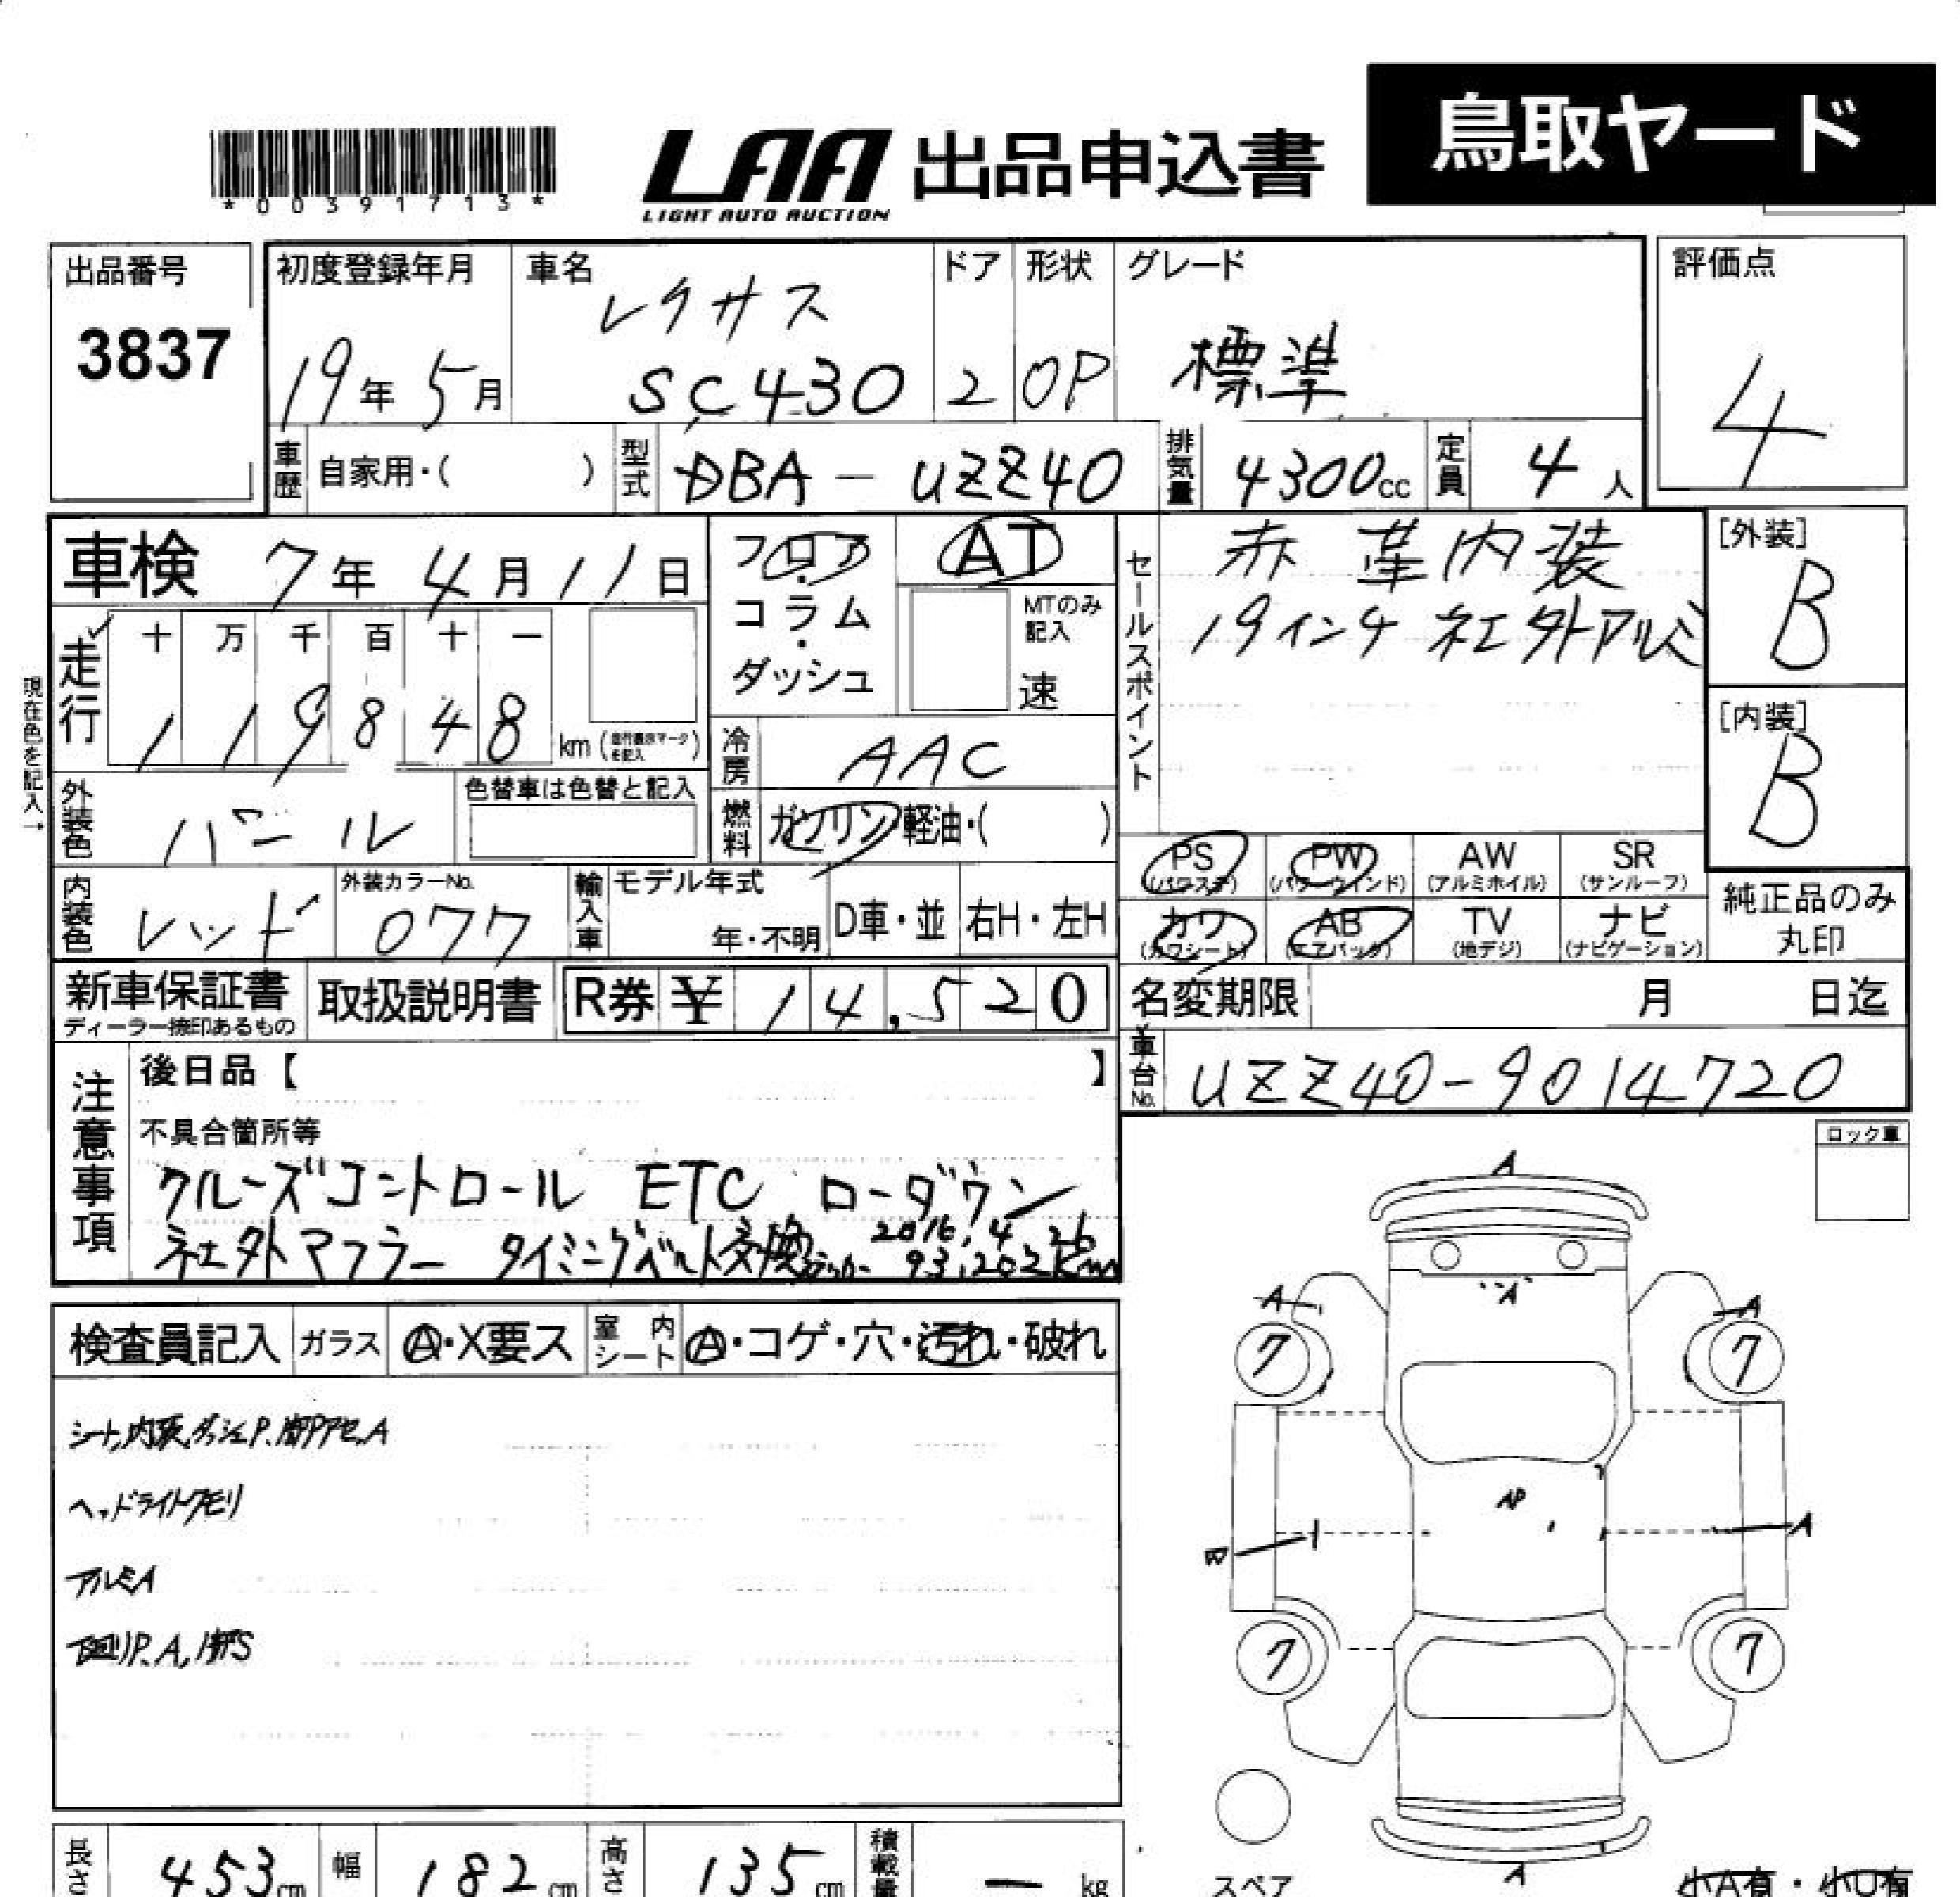 鳥取ヤード
*00391713*
LAA 出品申込書
LIGHT AUTO AUCTION
出品番号
3837
初度登録年月
19年5月
車名
レクサス
SC430
ドア
2
形状
OP
グレード
標準
評価点
4
車歴 自家用・( )
型式 DBA-UZZ40
排気量 4300cc
定員 4人
車検 7年4月11日
走行
十 万 千 百 十 一
1 1 9 8 4 8 km
現在色を記入→
フロア・コラム・ダッシュ
AT
MTのみ記入
速
冷房 AAC
燃料 ガソリン・軽油・( )
外装色 パール
色替車は色替と記入
内装色 レッド
外装カラーNo.
077
輸入車
モデル年式
年・不明
D車・並
右H・左H
セールスポイント
赤 革内装
19インチ 社外アルミ
[外装]
B
[内装]
B
PS (パワステ)
PW (パワーウインド)
AW (アルミホイル)
SR (サンルーフ)
カワ (カワシート)
AB (エアバック)
TV (地デジ)
ナビ (ナビゲーション)
純正品のみ
丸印
新車保証書
ディーラー捺印あるもの
取扱説明書
R券 ¥ 14,520
名変期限 月 日迄
車台No. UZZ40-9014720
注意事項
後日品【 】
不具合箇所等
クルーズコントロール ETC ローダウン
社外マフラー タイミングベルト交換 2016.4.26
93,202Km
ロック車
検査員記入
ガラス A・X要ス
室内シート A・コゲ・穴・汚れ・破れ
ヘッドライトクモリ
アルミA
A
A
A
A
7
7
AP
A
7
7
A
スペア
長さ 453cm
幅 182cm
高さ 135cm
積載量 ー kg
小A有・小U有